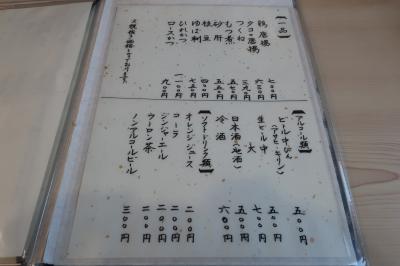 【一品】
鶏唐揚 七〇〇円
タコ唐揚 六三〇円
つくね 三九〇円
もつ煮 五七〇円
砂肝 五五〇円
枝豆 四〇〇円
ゆば刺 七五〇円
ひれかつ 一一〇〇円
ロースかつ 九〇〇円
税抜き価格となっております。
【アルコール類】
ビール中びん 五〇〇円
（アサヒ・キリン）
生ビール中 五〇〇円
大 七〇〇円
日本酒（地酒） 五〇〇円
冷酒 六〇〇円
【ソフトドリンク類】
オレンジジュース 二〇〇円
コーラ 二〇〇円
ジンジャエール 二〇〇円
ウーロン茶 二〇〇円
ノンアルコールビール 三〇〇円